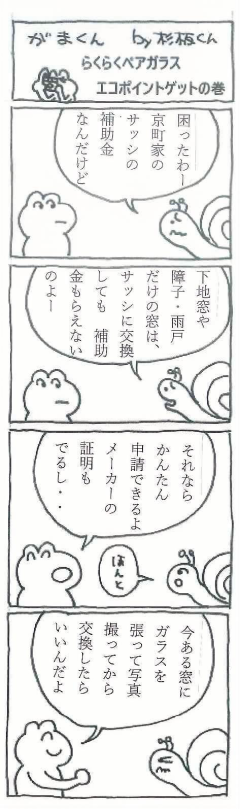 がまくん by杉板くん
らくらくペアガラス
エコポイントゲットの巻
困ったわー
京町家の
サッシの
補助金
なんだけど
下地窓や
障子・雨戸
だけの窓は、
サッシに交換
しても 補助
金もらえない
のよー
それなら
かんたん
申請できるよ
メーカーの
証明も
でるし・・
ほんと
今ある窓に
ガラスを
張って写真
撮ってから
交換したら
いいんだよ